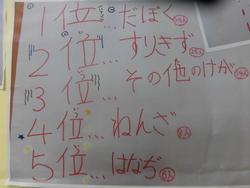 1位…だぼく
2位…すりきず
3位…その他のけが
4位…ねんざ
5位…はなぢ